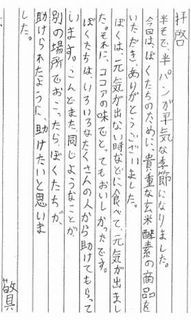 拝啓
半そで、半パンが平気な季節になりました。
今回は、ぼくたちのために、貴重な玄米酵素の商品を
いただき、ありがとうございました。
ぼくは、元気が出ない時などに食べて、元気が出まし
た。それに、ココアの味で、とてもおいしかったです。
ぼくたちは、いろいろなたくさんの人から助けてもらって
います。こんどまた、同じようなことが
別の場所でおこったら、ぼくたちが、
助けられたように、助けたいと思いま
した。
敬具